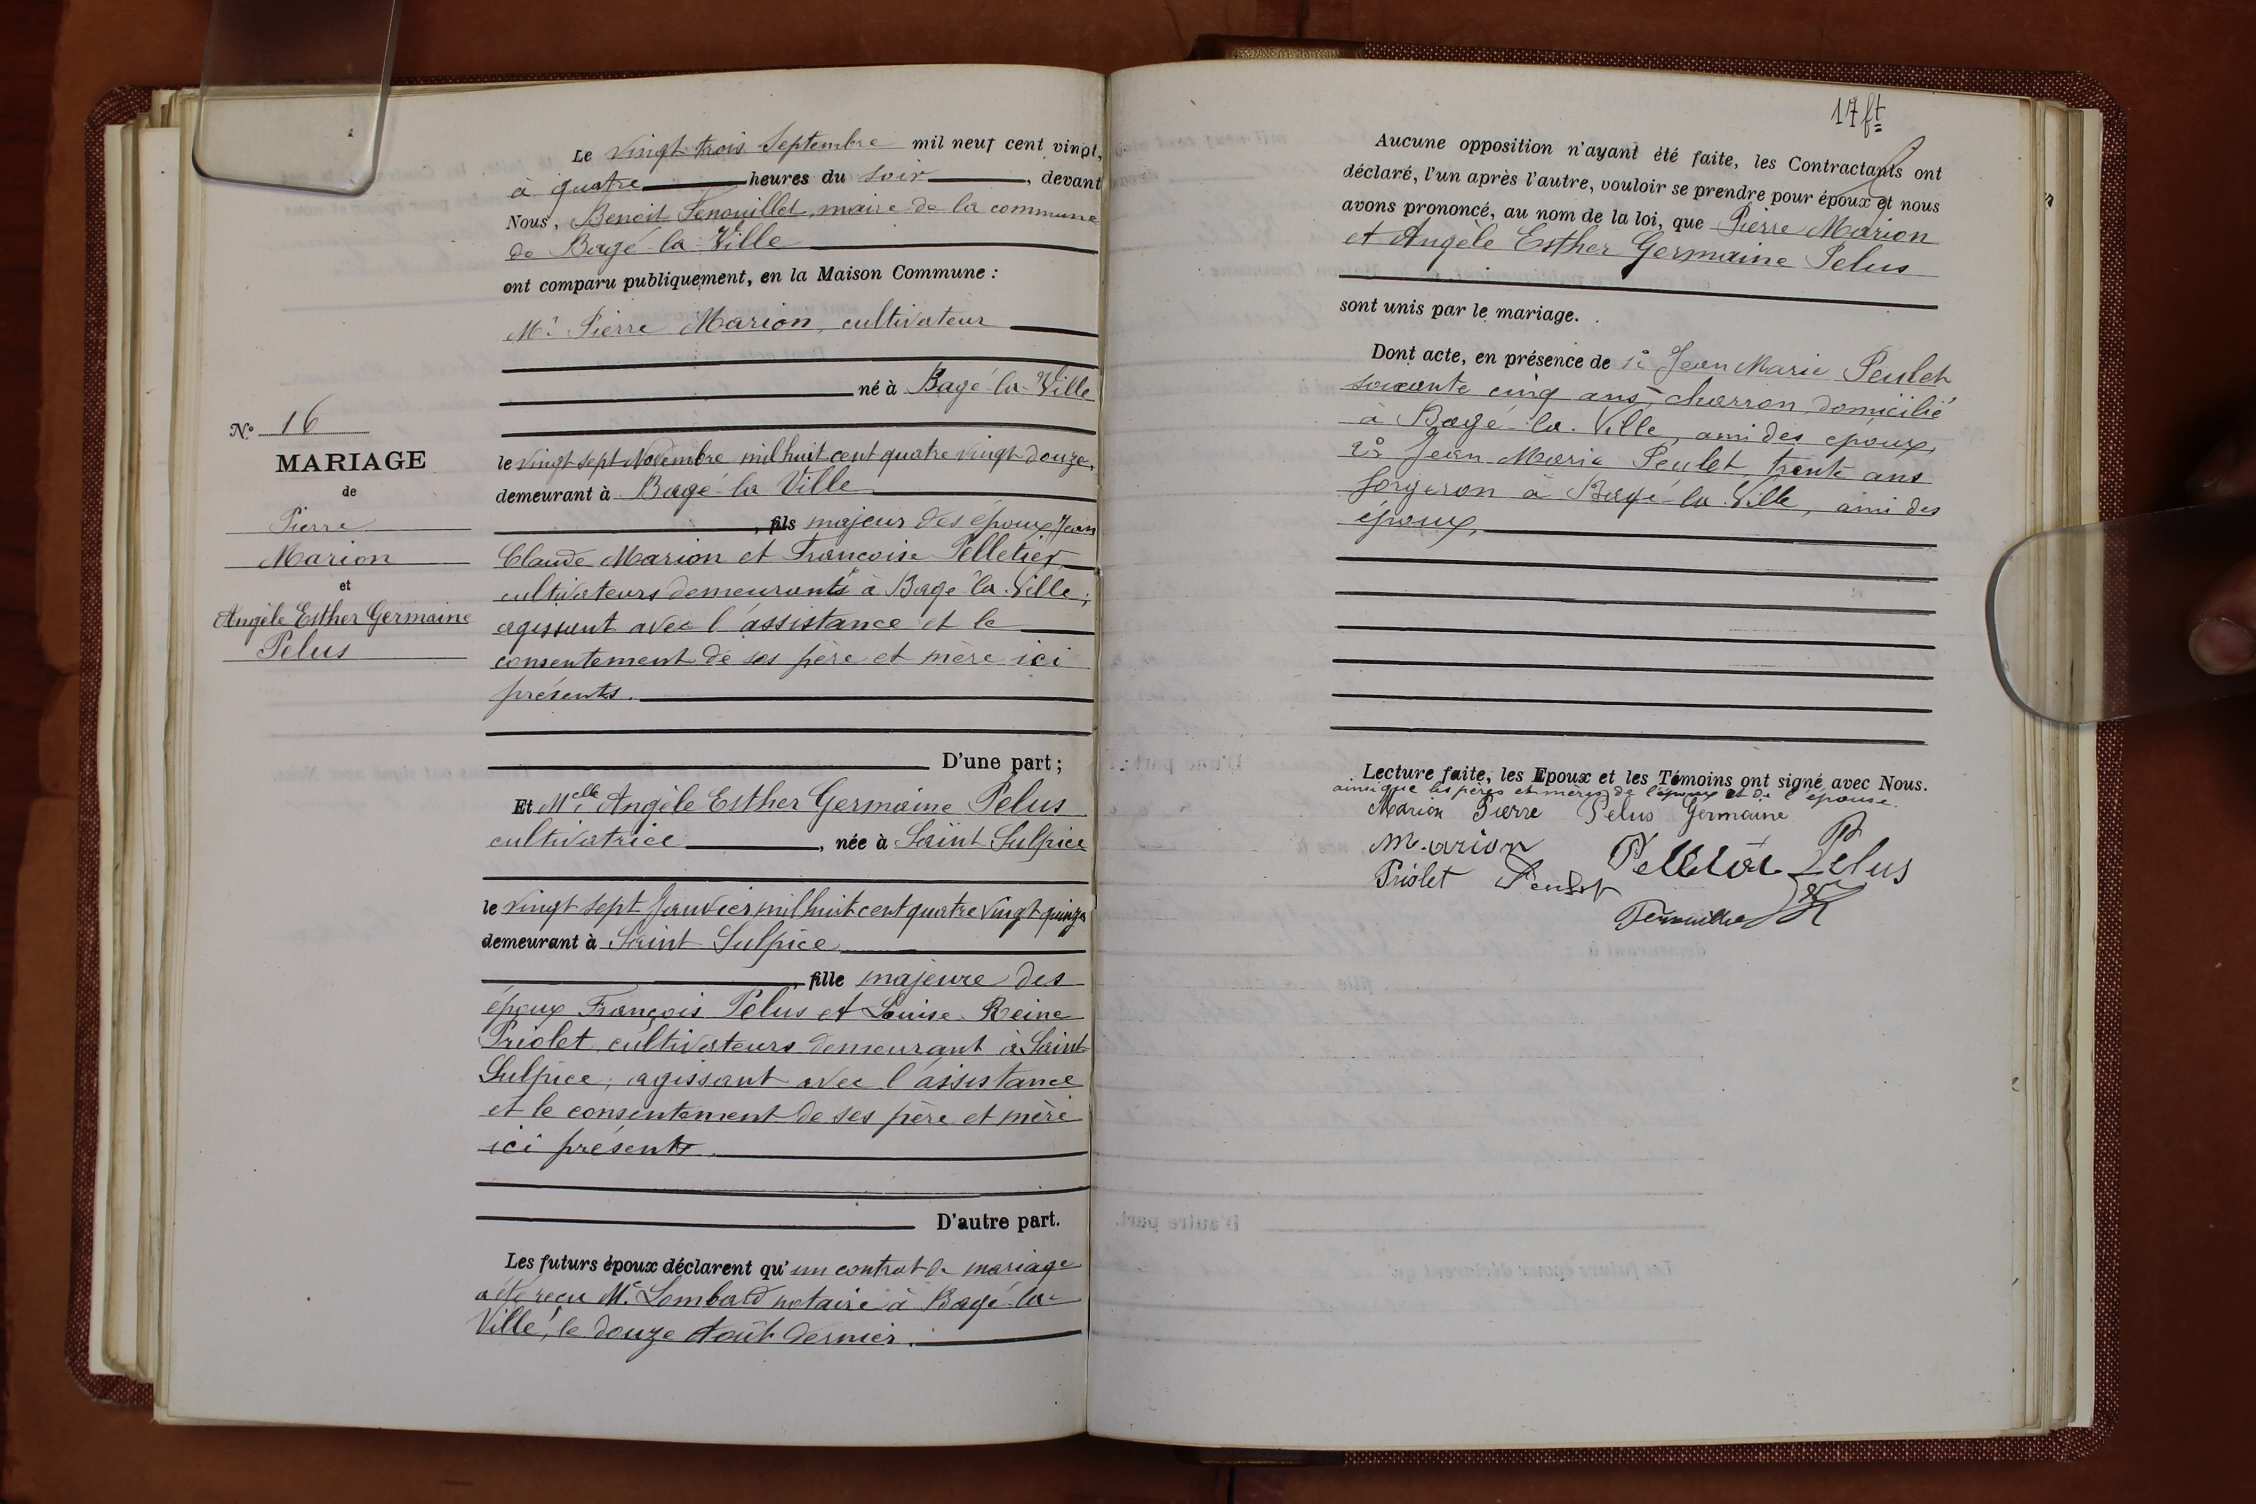 Le vingt trois Septembre mil neuf cent vingt,
à quatre heures du soir, devant
Nous, Benoit Fenouillet, maire de la commune
de Bagé-la-Ville
ont comparu publiquement, en la Maison Commune :
Mr. Pierre Marion, cultivateur
né à Bagé-la-Ville
le vingt sept Novembre mil huit cent quatre vingt douze,
demeurant à Bagé-la Ville
, fils majeur des époux Jean
Claude Marion et Françoise Pelletier
cultivateurs demeurants à Bagé la Ville,
agissant avec l'assistance et le
consentement de ses père et mère ici
présents.
D'une part ;
No 16
MARIAGE
de
Pierre
Marion
et
Angèle Esther Germaine
Pelus
Et Melle Angèle Esther Germaine Pelus
cultivatrice, née à Saint Sulpice
le vingt sept Janvier mil huit cent quatre vingt quinze
demeurant à Saint Sulpice
, fille majeure des
époux François Pelus et Louise Reine
Priolet, cultivateurs demeurant à Saint
Sulpice, agissant avec l'assistance
et le consentement de ses père et mère
ici présents.
D'autre part.
Les futurs époux déclarent qu'un contrat de mariage
a été reçu Me. Lombard notaire à Bagé-la-
Ville, le douze Août dernier.
17 ft
Aucune opposition n'ayant été faite, les Contractants ont
déclaré, l'un après l'autre, vouloir se prendre pour époux et nous
avons prononcé, au nom de la loi, que Pierre Marion
et Angèle Esther Germaine Pelus
sont unis par le mariage.
Dont acte, en présence de 1° Jean Marie Peulet
soixante cinq ans, charron domicilié
à Bagé-la-Ville, ami des époux,
2° Jean Marie Peulet, trente ans
forgeron à Bagé-la-Ville, ami des
époux,
Lecture faite, les Epoux et les Témoins ont signé avec Nous.
ainsi que les pères et mères de l'époux et de l'épouse.
Marion Pierre Pelus Germaine
Marion Pelletier Pelus
Priolet Peulet
Fenouillet